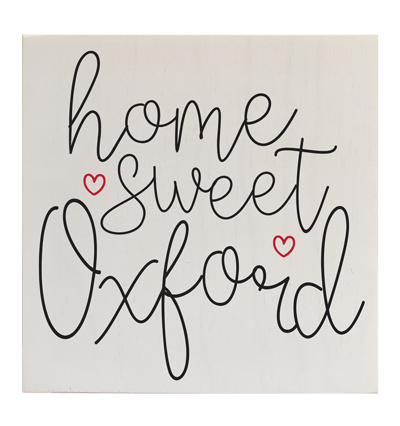 home
sweet
Oxford